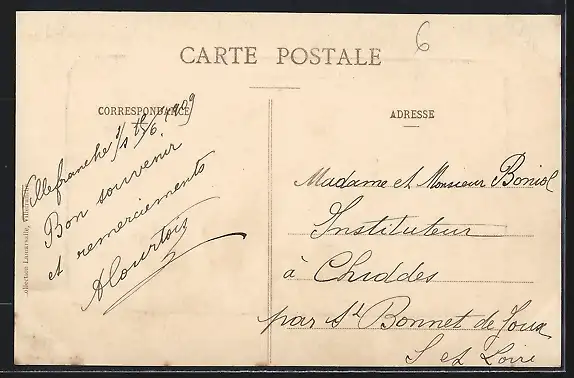 6
CARTE POSTALE
CORRESPONDANCE
Villefranche s/s 1909
Bon souvenir
et remerciements
ACourtois
ollection Lamarsalle, Villefranche
ADRESSE
Madame et Monsieur Boniol
Instituteur
à Chiddes
par St Bonnet de Joux
S et Loire